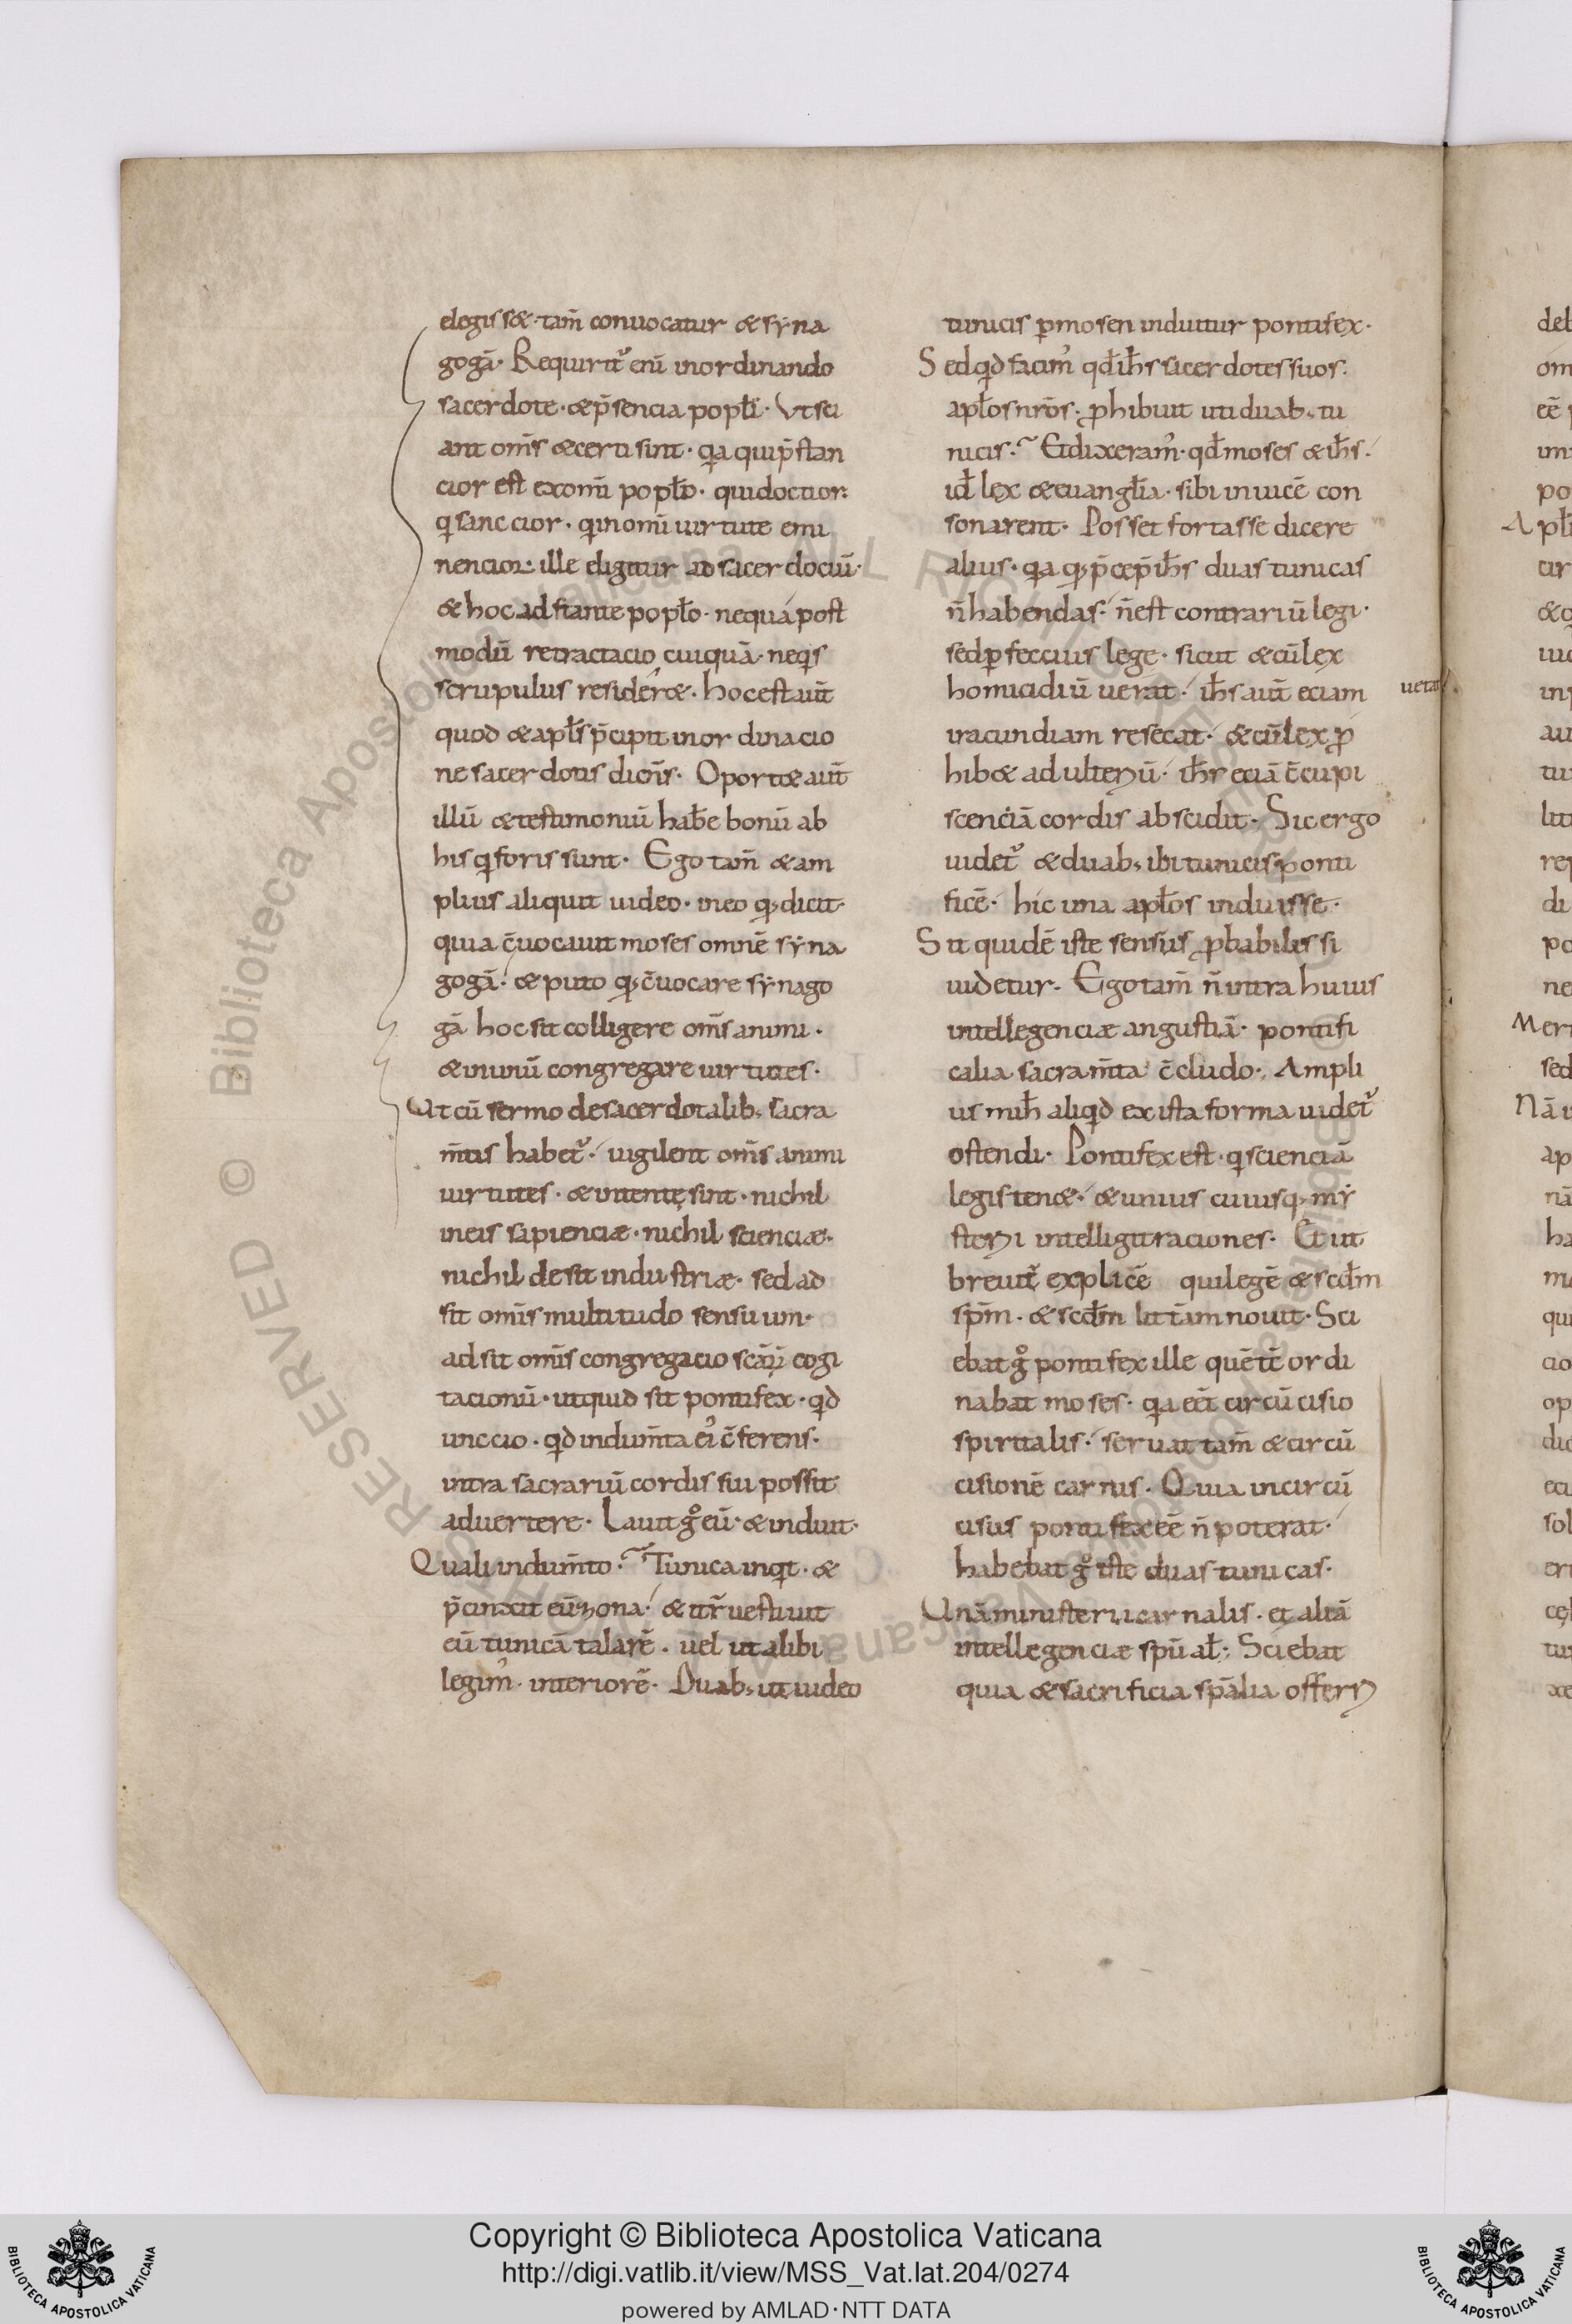 elegisset· tam̄ conuocatur & syna
gogā· Requirit᷑ enī inordinando
sacerdote· & p̄sencia popłi· Vt sci
ant om̄s & certi sint· qa qui p̄stan
cior est exomī popło· qui doctior·
q sanccior· qinomī uirtute emi
nencior· ille eligitur ad sacerdociū·
& hoc adstante popło· nequá post
modū retractacio cuiquā· neqs
scrupulus resider&· hoc est aut̄
quod & apłs p̄cipit inordinacio
ne sacerdotis dicēs· Oport& aut̄
illū & testimoniū hab̄e bonū ab
his q foris sunt· Ego tam̄ & am
plius aliquit uideo· ineo q; dicit·
quia c̄uocauit moses omnē syna
gogā· & puto q; c̄uocare synago
gā hoc sit colligere om̄s animi·
& inunū congregare uirtutes·
Ut cū sermo de sacerdotalib; sacra
m̄tis habet᷑· uigilent om̄s animi
uirtutes· & intentę sint· nichil
ineis sapienciæ· nichil scienciæ·
nichil desit industriæ· sed ad
sit omīs multitudo sensuum·
adsit omīs congregacio scāꝝ cogi
tacionū· ut quid sit pontifex· qd
unccio· qd indum̄ta ei᾽ c̄ferens·
intra sacrariū cordis sui possit
aduertere· Lauit g̊ eū· & induit·
Quali indum̄to· Tunica inqt· &
p̄cinxit eū zona· & it̄r uestiuit
eū tunicā talarē· uel ut alibi
legim᾽· interiorē· Duab; ut uideo
tunicis p mosen induitur pontifex·
Sed qd facim᾽ qd̄ ih̄s sacerdotes suos·
apłos nr̄os· phibuit uti duab; tu
nicis· Et dixeram᾽· qd̄ moses & ih̄s·
id̄ lex & euangłia· sibi inuicē con
sonarent· Posset fortasse dicere
alius· qa q; p̄cep̄ ih̄s duas tunicas
n̄ habendas· n̄ est contrariū legi·
sed pfeccius lege· sicut & cū lex
homicidiū uetat· ih̄s aut̄ eciam uetat
iracundiam resecat· & cū lex p
hib& adulteriū· ih̄s eciā c̄cupi
scenciā cordis abscidit· Sic ergo
uidet᷑ & duab; ibi tunicis ponti
ficē· hic una apłos induisse·
Sit quidē iste sensus pbabilis si
uidetur· Ego tam̄ n̄ intra huius
intellegenciæ angustiā· pontifi
calia sacram̄ta c̄cludo· Ampli
us mih̄ aliqd ex ista forma uidet᷑
ostendi· Pontifex est· q scienciā
legis ten&· & unius cuiusq; my
sterii intelligit raciones· Et ut
breuit̄ explicē qui legē & scd̄m
sp̄m· & scd̄m litt̄am nouit· Sci
ebat g̊ pontifex ille quē tc̄ ordi
nabat moses· qa eēt circūcisio
spiritalis· seruat tam̄ & circū
cisionē carnis· Quia incircū
cisus pontifex eē n̄ poterat·
habebat g̊ iste duas tunicas·
Unā ministerii carnalis· et aliā
intellegenciæ spūał· Sciebat
quia & sacrificia sp̄alia offerri
Copyright © Biblioteca Apostolica Vaticana
http://digi.vatlib.it/view/MSS_Vat.lat.204/0274
powered by AMLAD·NTT DATA
BIBLIOTECA APOSTOLICA VATICANA
BIBLIOTECA APOSTOLICA VATICANA